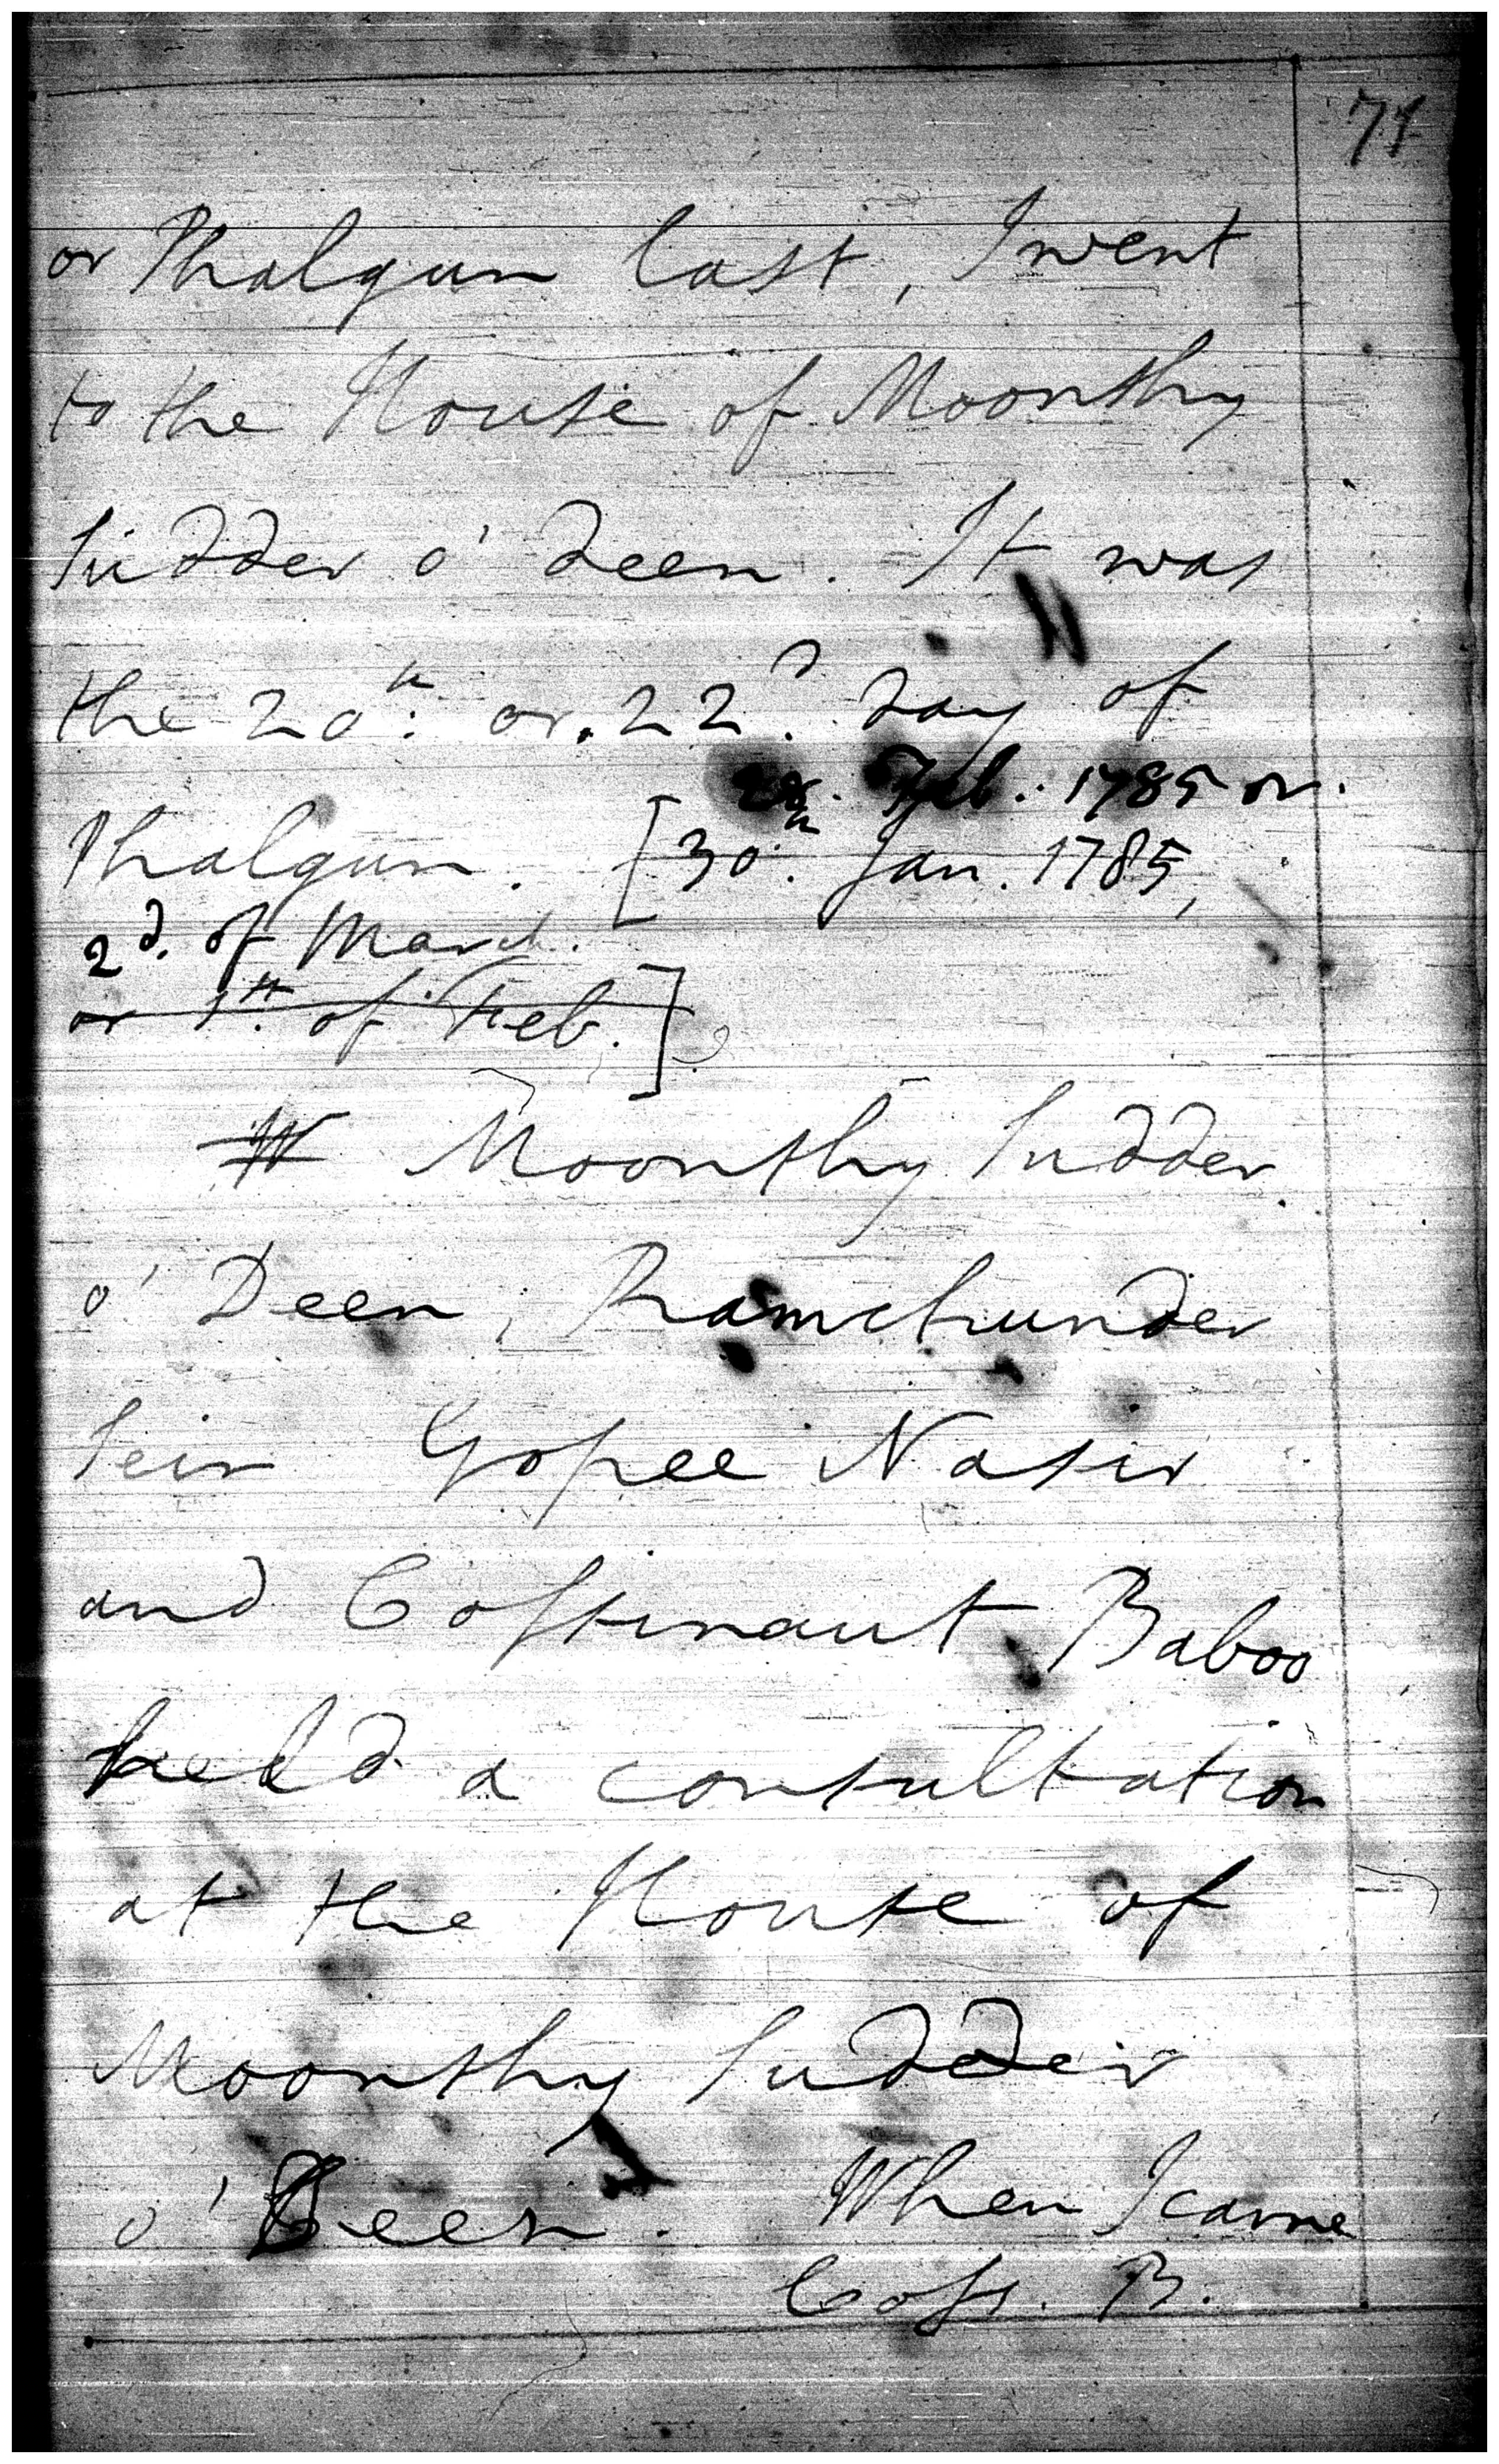 71
or Phalgun last, I went
to the House of Moonshy
Sudder o' deen. It was
the 20th. or. 22d. day of
28. Feb. 1785 or.
Phalgun. [30th. Jan. 1785,
2d. of March.
or 1st. of Feb.]
W Moonshy Sudder
o' Deen, Ramchunder
Sein Gopee Nasir
and Cossinaut Baboo
held a consultation
at the House of
Moonshy Sudder
o' Deen. When I came
Coss. B.